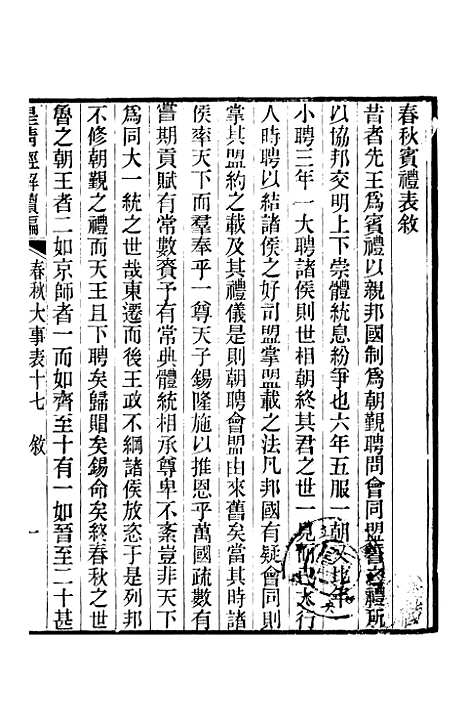 春秋賓禮表敘
昔者先王爲賓禮以親邦國制爲朝覲聘問會同盟誓之禮所
以協邦交明上下崇體統息紛爭也六年五服一朝又比年一
小聘三年一大聘諸侯則世相朝終其君之世一見而已大行
人時聘以結諸侯之好司盟掌盟載之法凡邦國有疑會同則
掌其盟約之載及其禮儀是則朝聘會盟由來舊矣當其時諸
侯率天下而羣奉乎一尊天子錫隆施以推恩乎萬國疏數有
嘗期貢賦有常數賚予有常典體統相承尊卑不紊豈非天下
爲同大一統之世哉東遷而後王政不綱諸侯放恣于是列邦
不修朝覲之禮而天王且下聘矣歸賵矣錫命矣終春秋之世
魯之朝王者二如京師者一而如齊至十有一如晉至二十甚
皇清經解續編 春秋大事表十七 敘 一